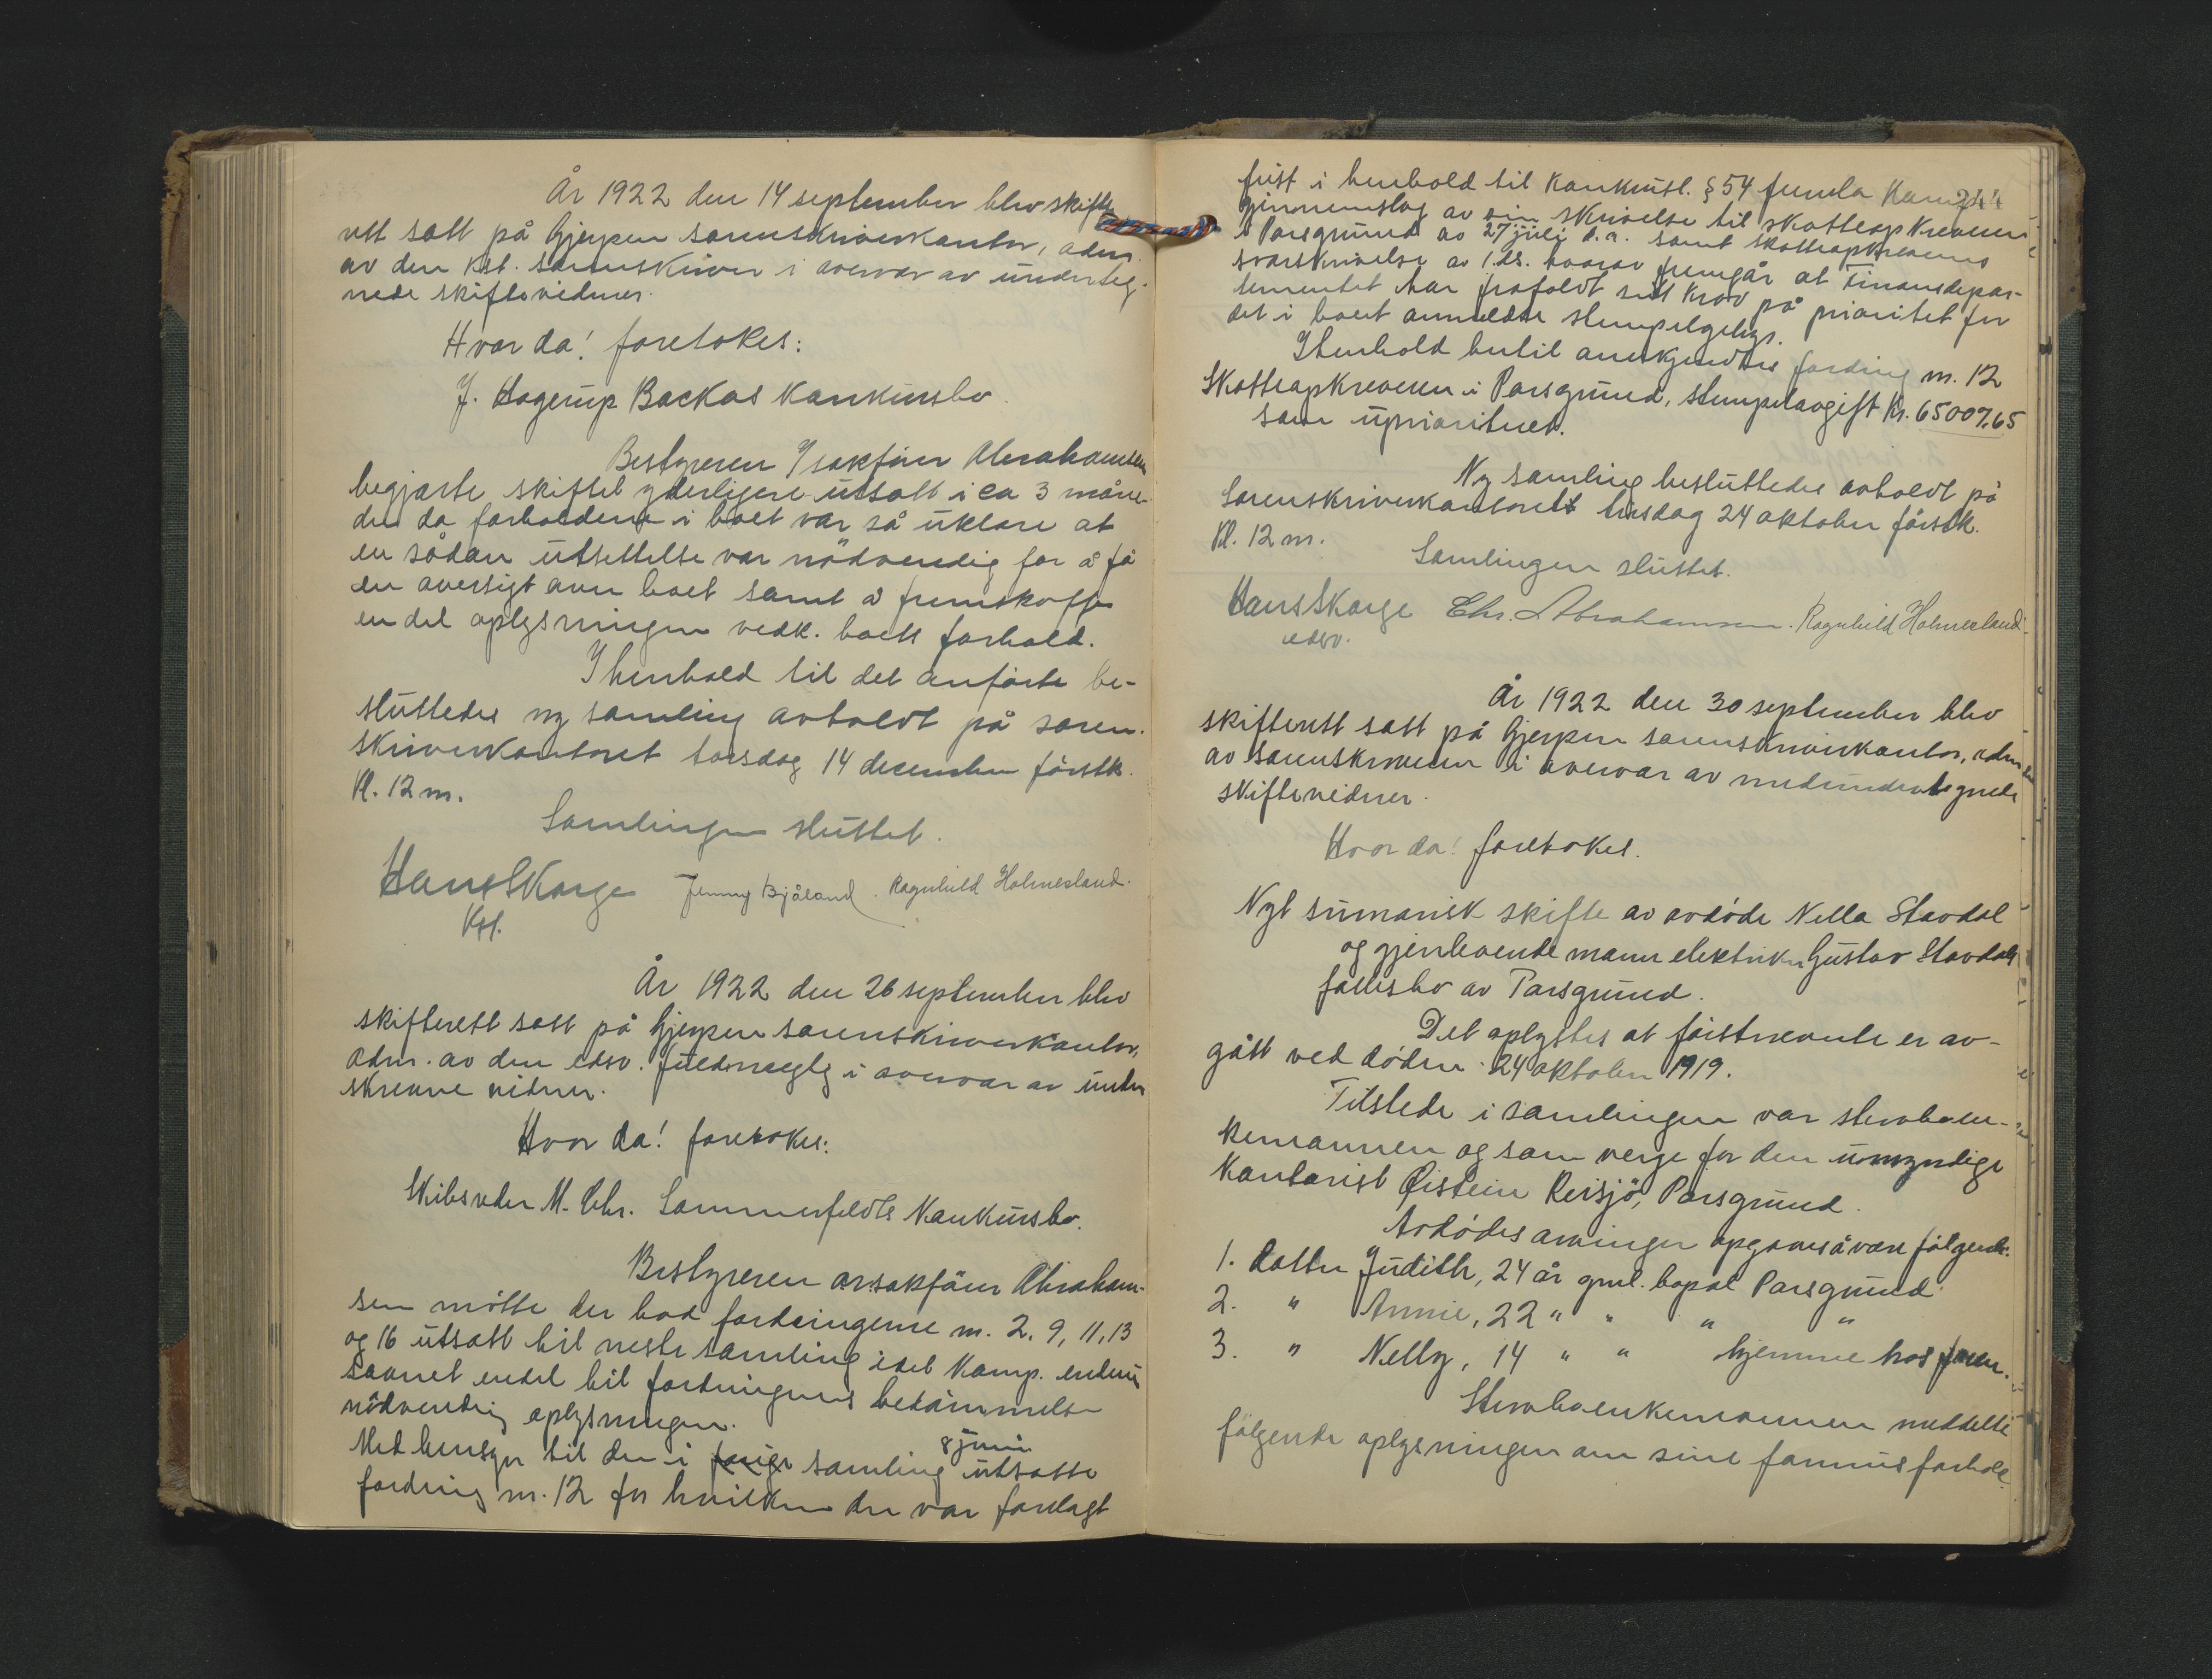 År 1922 den 14 september blev skifte
rett satt på Gjerpen sorenskriverkontor, adm.
av den kst. sorenskriver i overvær av underteg-
nede skiftevidner.
Hvor da! foretokes:
J. Hagerup Backas konkursbo.
Bestyreren O sakfører Abrahamsen
begjærte skiftet yderligere utsatt i ca 3 måne-
der da forholdene i boet var så uklare at
en sådan utsettelse var nødvendig for å få
en oversigt over boet samt å fremskaffe
en del oplysninger vedk. boets forhold.
I henhold til det anførte be-
sluttedes ny samling avholdt på soren-
skriverkontoret torsdag 14 december førstk.
kl. 12 m.
Samlingen sluttet.
Hans Skarge Jenny Bjåland. Ragnhild Holmesland.
Kst.
År 1922 den 26 september blev
skifterett satt på Gjerpen sorenskriverkontor,
adm. av den edsv. fuldmegtg i overvær av under
skrevne vidner.
Hvor da! foretokes:
Skibsreder M. Chr. Sommerfeldts konkursbo.
Bestyreren orsakfører Abraham-
sen møtte der bad fordringerne nr. 2, 9, 11, 13
og 16 utsatt til neste samling idet komp. endnu
savnet endel til fordringens bedømmelse
nødvendig oplysninger.
Med hensyn til den i forige samling 8 juni utsatte
fordring nr. 12 for hvilken der var forelagt
frist i henhold til konkursl. § 54 244
gjennemslag av sin skrivelse til skatteopkreveren
i Porsgrund av 27 juli d.a. samt skatteopkreverens
svarskrivelse av 1. ds. hvorav fremgår at Finansdepar-
tementet har frafaldt sitt krav på prioritet for
det i boet anmeldte stempelgebyr.
I henhold hertil anerkjendtes fordring nr. 12
Skatteopkreveren i Porsgrund, stempelavgift kr. 65007,65
som uprioritert.
Ny samling besluttedes avholdt på
Sorenskriverkontoret tirsdag 24 oktober førstk.
kl. 12 m.
Samlingen sluttet.
Hans Skarge Chr. Abrahamsen. Ragnhild Holmesland.
edsv.
År 1922 den 30 september blev
skifterett satt på Gjerpen sorenskriverkontor, adm
av sorenskriveren i overvær av medundertegnede
skiftevidner.
Hvor da! foretokes.
Nyt sumarisk skifte av avdøde Nella Stavdal
og gjenlevende mann elektriker Gustav Stavdals
fællesbo av Porsgrund.
Det oplystes at førstnevnte er av-
gått ved døden 24 oktober 1919.
Tilstede i samlingen var stervboen-
kemannen og som verge for den umyndige
kontorist Øistein Reisjø, Porsgrund.
Avdødes arvinger opgaves å være følgende:
1. datter Judith, 24 år gml. bopæl Porsgrund
2. " Annie, 22 " " " "
3. " Nelly, 14 " " hjemme hos faren.
Stervboenkemannen meddelte
følgende oplysninger om sine formuesforhold